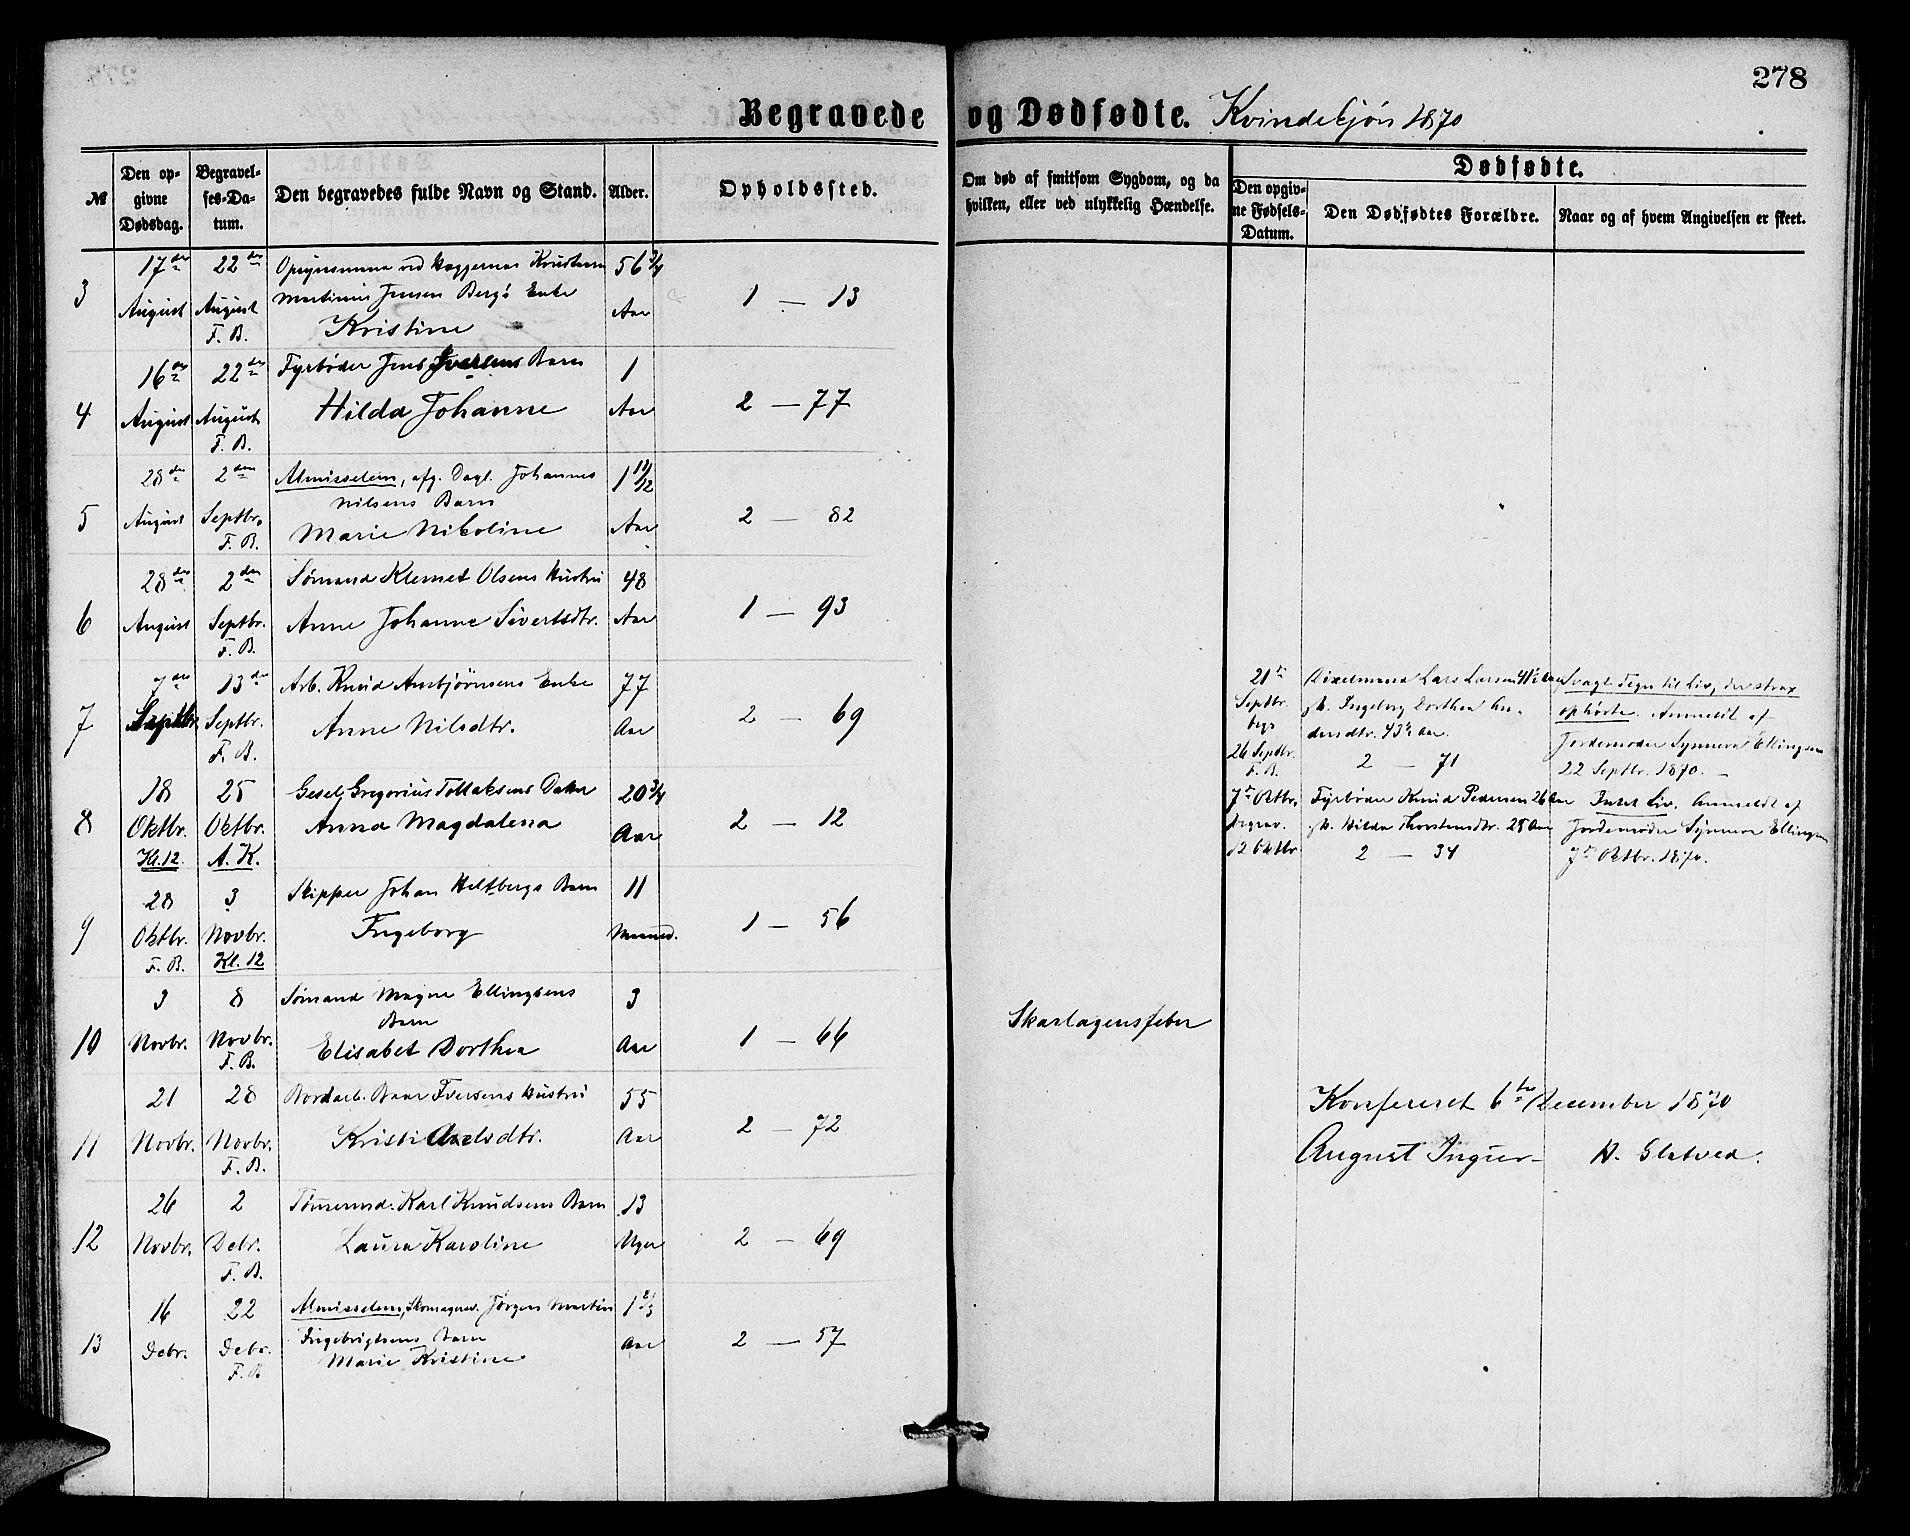 278
Begravede og Dødfødte. Kvindekjøn 1870
№
Den opgivne Dødsdag.
Begravelses-Datum.
Den begravedes fulde Navn og Stand.
Alder.
Opholdssted.
Om død af smitsom Sygdom, og da hvilken, eller ved ulykkelig Hændelse.
Dødfødte.
Den opgivne Fødsels-Datum.
Den Dødfødtes Forældre.
Naar og af hvem Angivelsen er skeet.
3
17de August
22de August F. B.
Opsynsmand ved Martinius Jensen Bergs Enke
Kristine
56 3/4 Aar
1 — 13
4
16de August
22de August F. B.
Fyrbøder Jens Iversens Barn
Hilda Johanne
1 Aar
2 — 77
5
28de August
2den Septbr. F. B.
Almisselem, afg. Dagl. Johannes
Nilsens Barn
Marie Nikoline
1 11/12 Aar
2 — 82
6
28de August
2den Septbr. F. B.
Sømand Klemet Olsens Hustru
Anne Johanne Sivertsdtr.
48 Aar
1 — 93
7
7de Septbr.
13de Septbr. F. B.
Arb. Knud Ansbjørnsens Enke
Anne Nilsdtr.
77 Aar
2 — 69
21de Septbr. begr. 26 Septbr. F. B.
Lars Larsen 41 1/2 Aar
Ingeborg Dorthea An-
dersdtr. 43 1/2 Aar.
2 — 71
Svagt Tegn til Liv, der strax
ophørte. Anmeldt af
Jordemoder Synneva Ellingsen
22 Septbr. 1870. —
8
18 Oktbr. Kl. 12
25 Oktbr. A. K.
Gesel Gregorius Tollaksens Datter
Anna Magdalena
20 3/4 Aar
2 — 12
7de Oktbr. begrav. 12 Oktbr
Fyrbøder Knud Pedersen 26 Aar
Hilda Thorstensdtr. 28 Aar
2 — 34
Intet Liv. Anmeldt af
Jordemoder Synneva Ellingsen
7de Oktbr. 1870.
9
28 Oktbr. F. B.
3 Novbr. Kl. 12
Skipper Johan Heltbergs Barn
Ingeborg
11 Maaned.
1 — 56
10
3 Novbr.
8 Novbr. F. B.
Sømand Magne Ellingsens
Barn
Elisabet Dorthea
3 Aar
1 — 66
Skarlagensfeber
11
21 Novbr.
28 Novbr. F. B.
Bordarb. Baar Iversens Hustru
Kristi Axelsdtr.
55 Aar
2 — 72
Konfereret 6te December 1870
August Ingier — H. Slatved.
12
26 Novbr.
2 Debr. F. B.
Tømermd. Karl Knudsens Barn
Laura Karoline
13 Uger
2 — 69
13
16 Debr.
22 Debr. F. B
Almisselem, Skomagersv. Jørgen Martin
Ingebrigtsens Barn
Marie Kristine
1 2/3 Aar
2 — 57